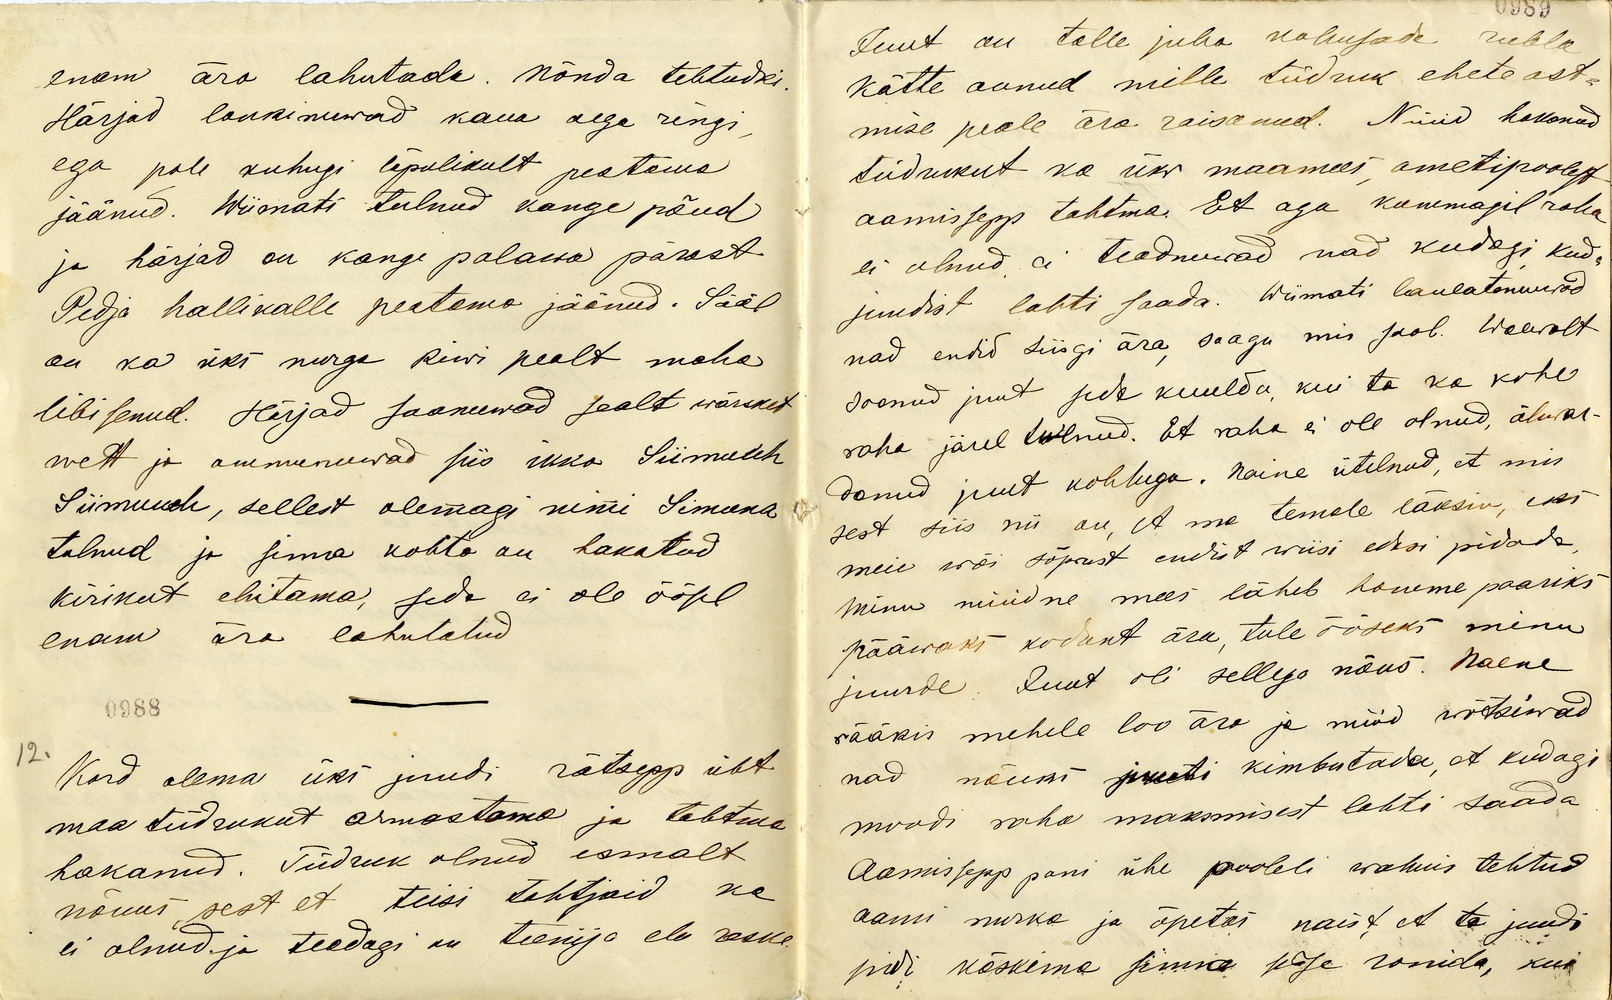 enam ära lahutada. Nõnda tehtudki.
Härjad lonkinuwad kaua aega ringi,
ega pole kuhugi lõpulikult peatama
jäänud. Wiimati tulnud kange põud
ja härjad on kange palawa pärast
Pedja hallikalle peatama jäänud. Sääl
on ka üks nurga kiwi pealt maha
libisenud. Härjad saanuwad sealt wärsket
wett ja ammunuwad siis ikka Siimuuh
Siimuuh, sellest olemagi nimi Simuna
tulnud ja sinna kohta on hakatud
kirikut ehitama, seda ei ole öösel
enam ära lahutatud
0988
12.
Kord olema üks juudi rätsepp üht
maa tüdrukut armastama ja tahtma
hakanud. Tüdruk olnud esmalt
nõuus, sest et teisi tahtjaid ka
ei olnud ja teadagi on teenija elu raske
0989
Juut on talle juba kolmsada rubla
kätte annud mille tüdruk ehete ost-
mise peale ära raisanud. Nüüd hakanud
tüdrukut ka üks maamees, ametipoolest
aamissepp tahtma. Et aga kummagil raha
ei olnud, ei teadnuwad nad kudagi kud-
juudist lahti saada. Wiimati laulatanuwad
nad endid siisgi ära, saagu mis saab. Waewalt
saanud juut seda kuulda, kui ta ka kohe
raha järel tulnud. Et raha ei ole olnud, ähwar-
danud juut kohtuga. Naine ütelnud, et mis
sest siis nii on, et ma temale läksin, eks
meie wõi sõprust endist wiisi edasi pidada,
Minu nüüdne mees läheb homme paariks
pääwaks kodunt ära, tule ööseks minu
juurde. Juut oli sellega nõus. Naene
rääkis mehele loo ära ja nüüd wõtsiwad
nad nõuks juuti kimbutada, et kudagi
moodi raha maksmisest lahti saada
Aamissepp pani ühe pooleli walmis tehtud
aami nurka ja õpetas naist, et ta juudi
pidi käskima sinna sisse ronida, kui